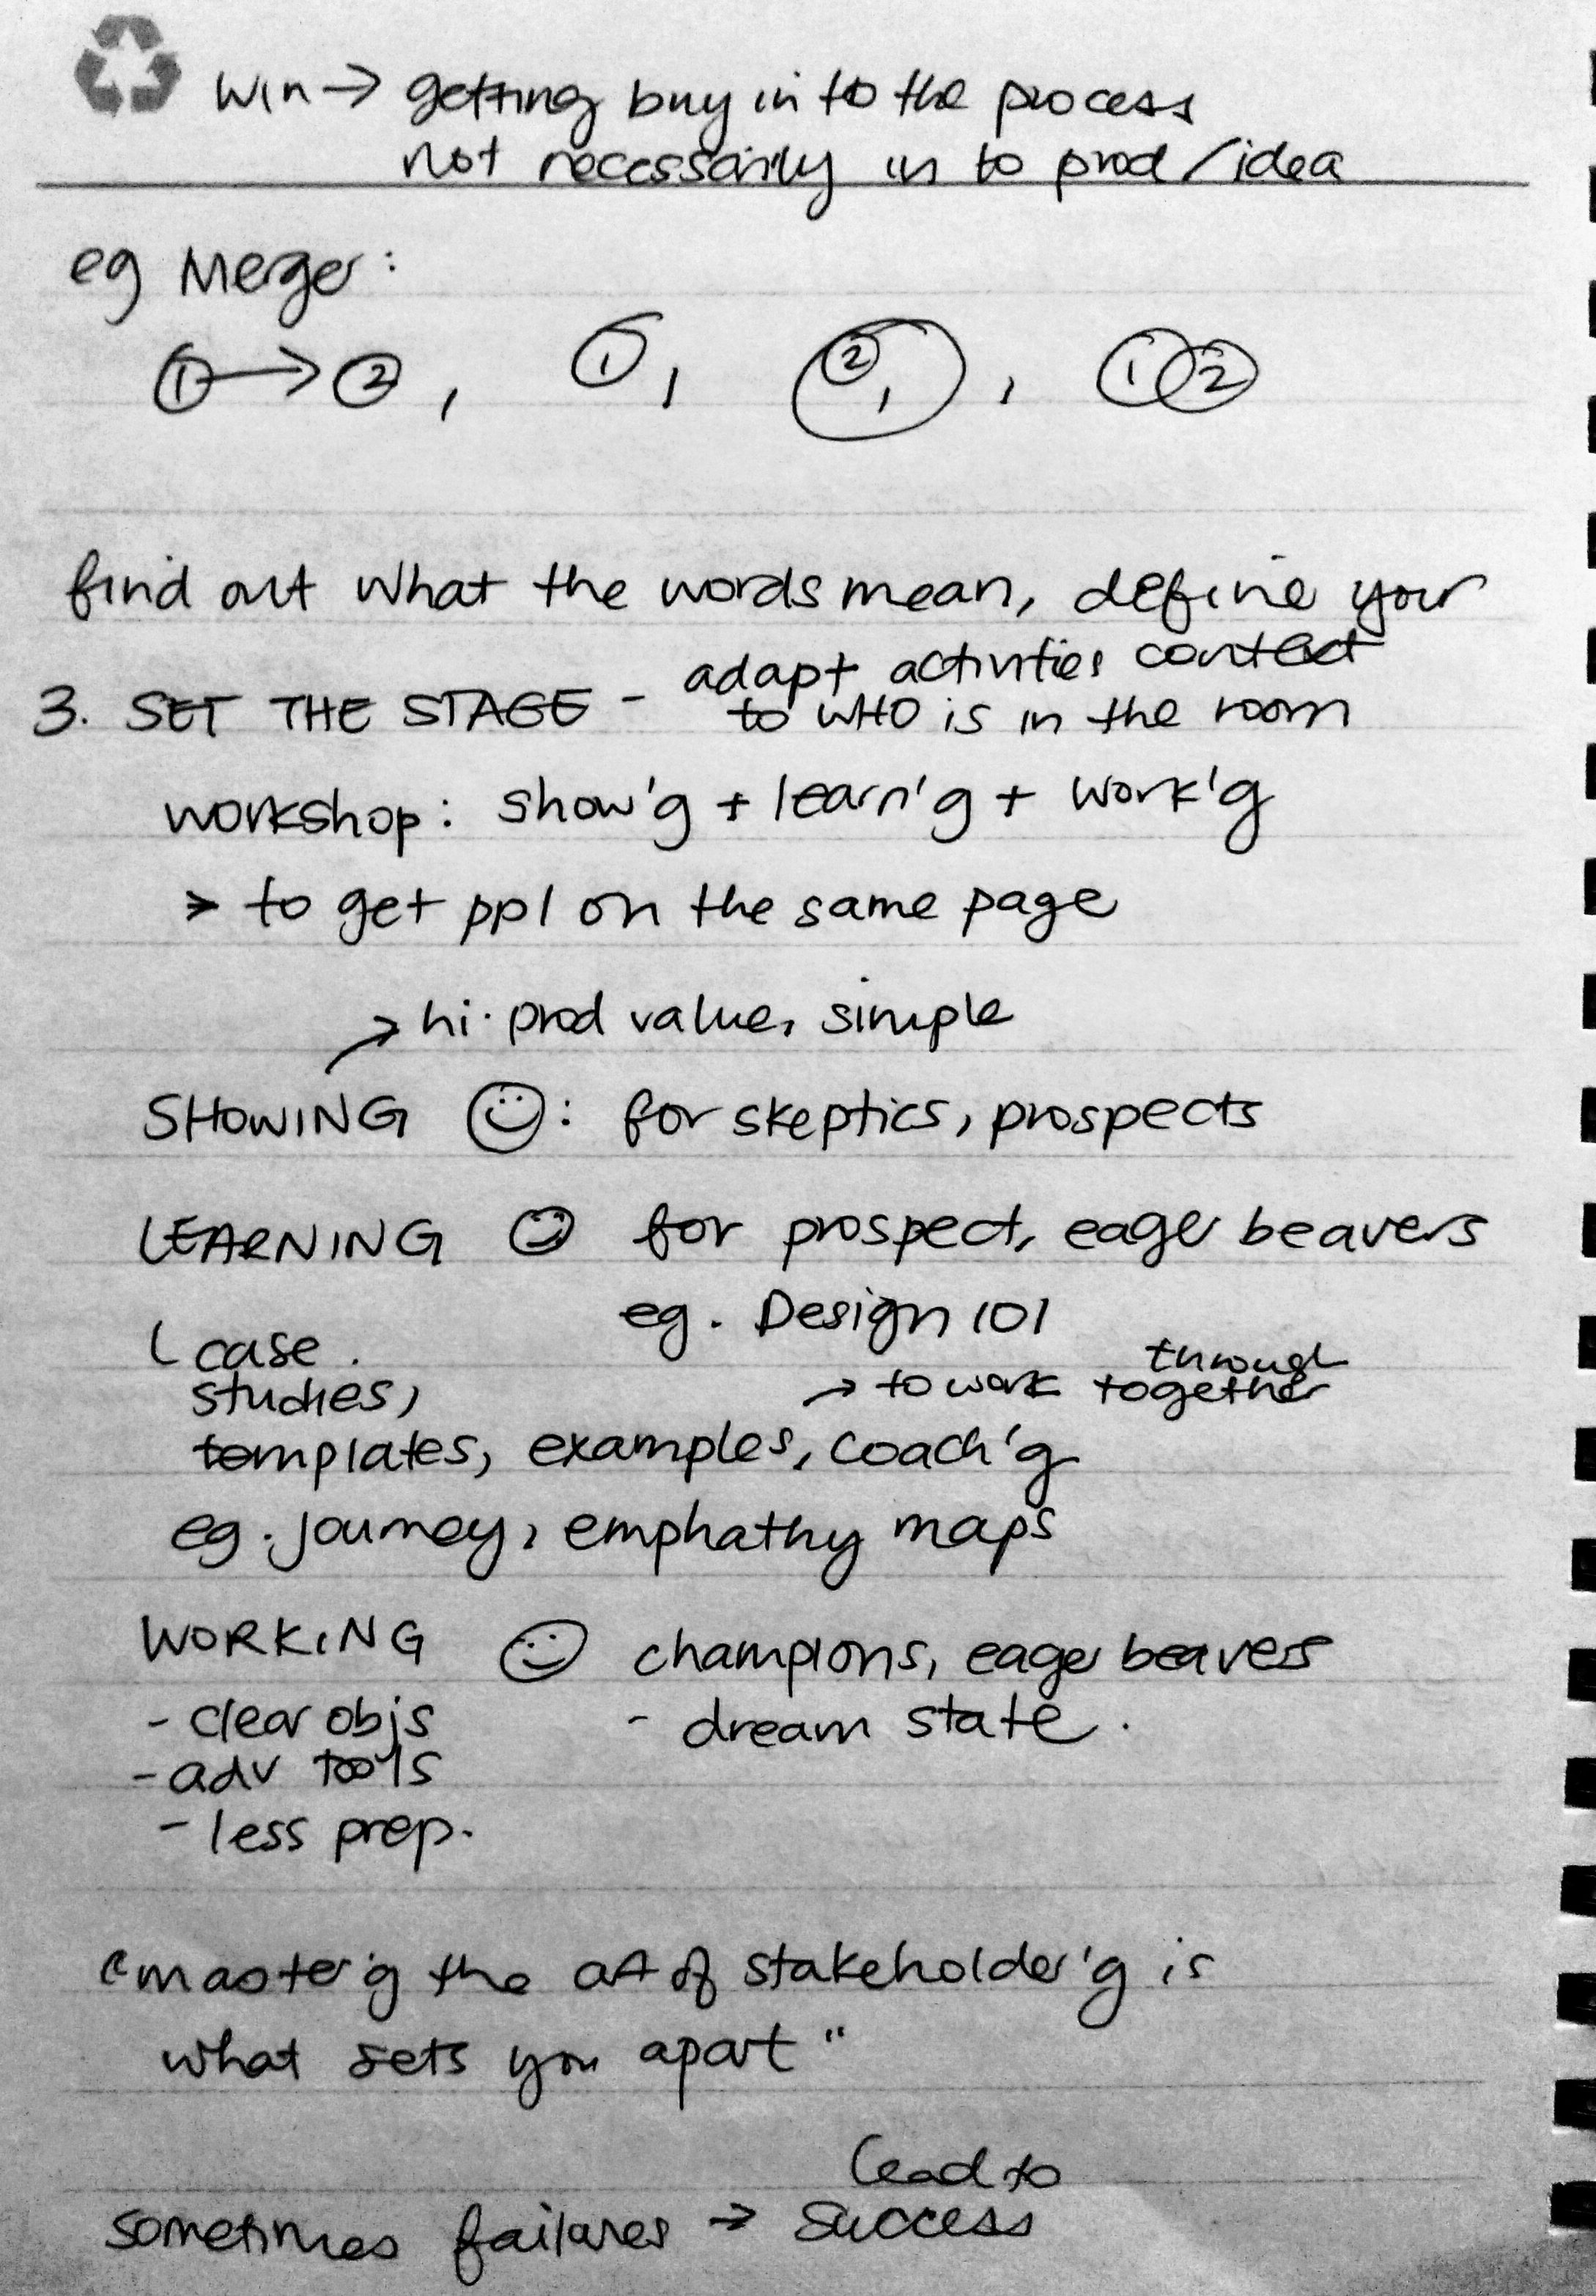 Win → getting buy in to the process
not necessarily in to prod/idea
eg Merger:
1 → 2, 1, 2, 1 2
find out what the words mean, define your
context
3. SET THE STAGE - adapt activities
to WHO is in the room
workshop: show'g + learn'g + work'g
> to get ppl on the same page
→ hi. prod value, simple
SHOWING : for skeptics, prospects
LEARNING for prospect, eager beavers
eg. Design 101
case
studies,
→ to work through
together
templates, examples, coach'g
eg. journey, emphathy maps
WORKING champions, eager beavers
- clear objs - dream state.
- adv tools
- less prep.
"master'g the art of stakeholder'g is
what sets you apart"
lead to
sometimes failures → success